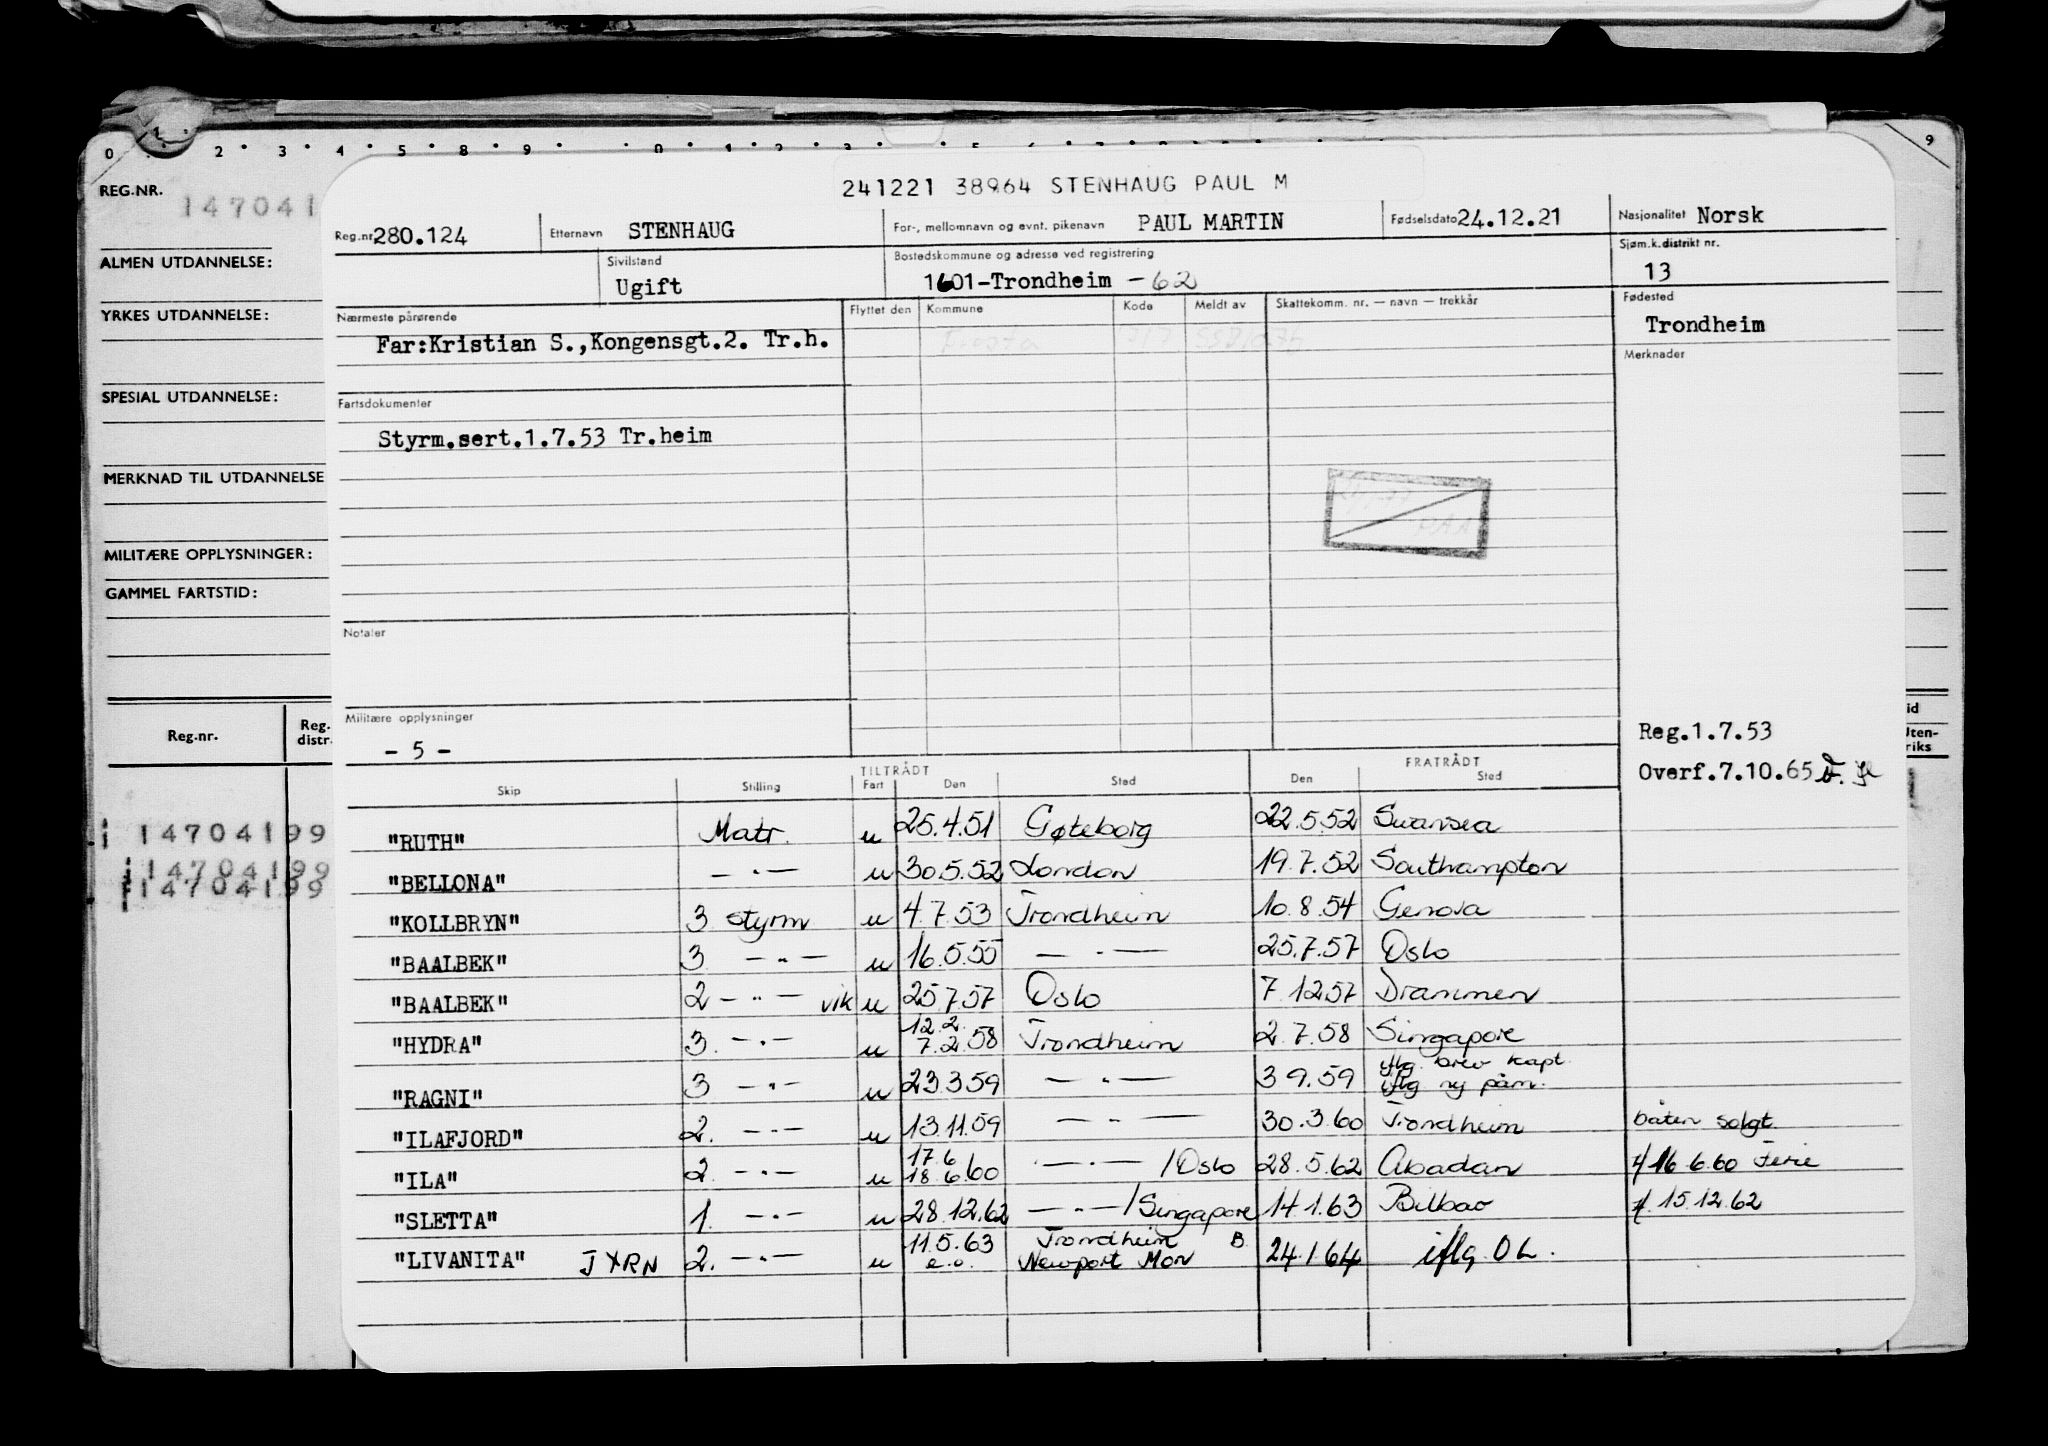 0 2 3 4 5 8 9 0 1 2 3 5 9
REG.NR.
147041
ALMEN UTDANNELSE:
YRKES UTDANNELSE:
SPESIAL UTDANNELSE:
MERKNAD TIL UTDANNELSE
MILITÆRE OPPLYSNINGER:
GAMMEL FARTSTID:
Reg.nr. Reg. distr.
i 14704199
i 14704199
i 14704199
241221 38964 STENHAUG PAUL M
Reg.nr 280.124 Etternavn STENHAUG For-, mellomnavn og evnt. pikenavn PAUL MARTIN Fødselsdato 24.12.21 Nasjonalitet Norsk
Sivilstand Ugift Bostedskommune og adresse ved registrering 1601-Trondheim - 62 Sjøm.k.distrikt nr. 13
Nærmeste pårørende Flyttet den Kommune Kode Meldt av Skattekomm. nr. — navn — trekkår Fødested
Far:Kristian S.,Kongensgt.2. Tr.h. Frosta 717 Trondheim
Merknader
Fartsdokumenter
Styrm.sert.1.7.53 Tr.heim
Notater
Militære opplysninger
- 5 -
Reg.1.7.53
Overf.7.10.65
TILTRÅDT FRATRÅDT
Skip Stilling Fart Den Sted Den Sted
"RUTH" Matr. u 25.4.51 Gøteborg 22.5.52 Swansea
"BELLONA" — " — u 30.5.52 London 19.7.52 Southampton
"KOLLBRYN" 3 styrm u 4.7.53 Trondheim 10.8.54 Genova
"BAALBEK" 3 — " — u 16.5.55 — " — 25.7.57 Oslo
"BAALBEK" 2 — " — vik u 25.7.57 Oslo 7.12.57 Drammen
"HYDRA" 3. — " — u 12.2. 7.2.58 Trondheim 2.7.58 Singapore
"RAGNI" 3 — " — u 23.3.59 — " — 3.9.59 iflg. brev kapt. iflg ny påm.
"ILAFJORD" 2. — " — u 13.11.59 — " — 30.3.60 Trondheim båten solgt
"ILA" 2. — " — u 17.6 18.6.60 — " — /Oslo 28.5.62 Abadan 16.6.60 Ferie
"SLETTA" 1. — " — u 28.12.62 — " — /Singapore 14.1.63 Bilbao 15.12.62
"LIVANITA" JXRN 2. — " — u 11.5.63 e.o. Trondheim B. Newport Mon 24.1.64 iflg. OL.
id
Uten-
riks